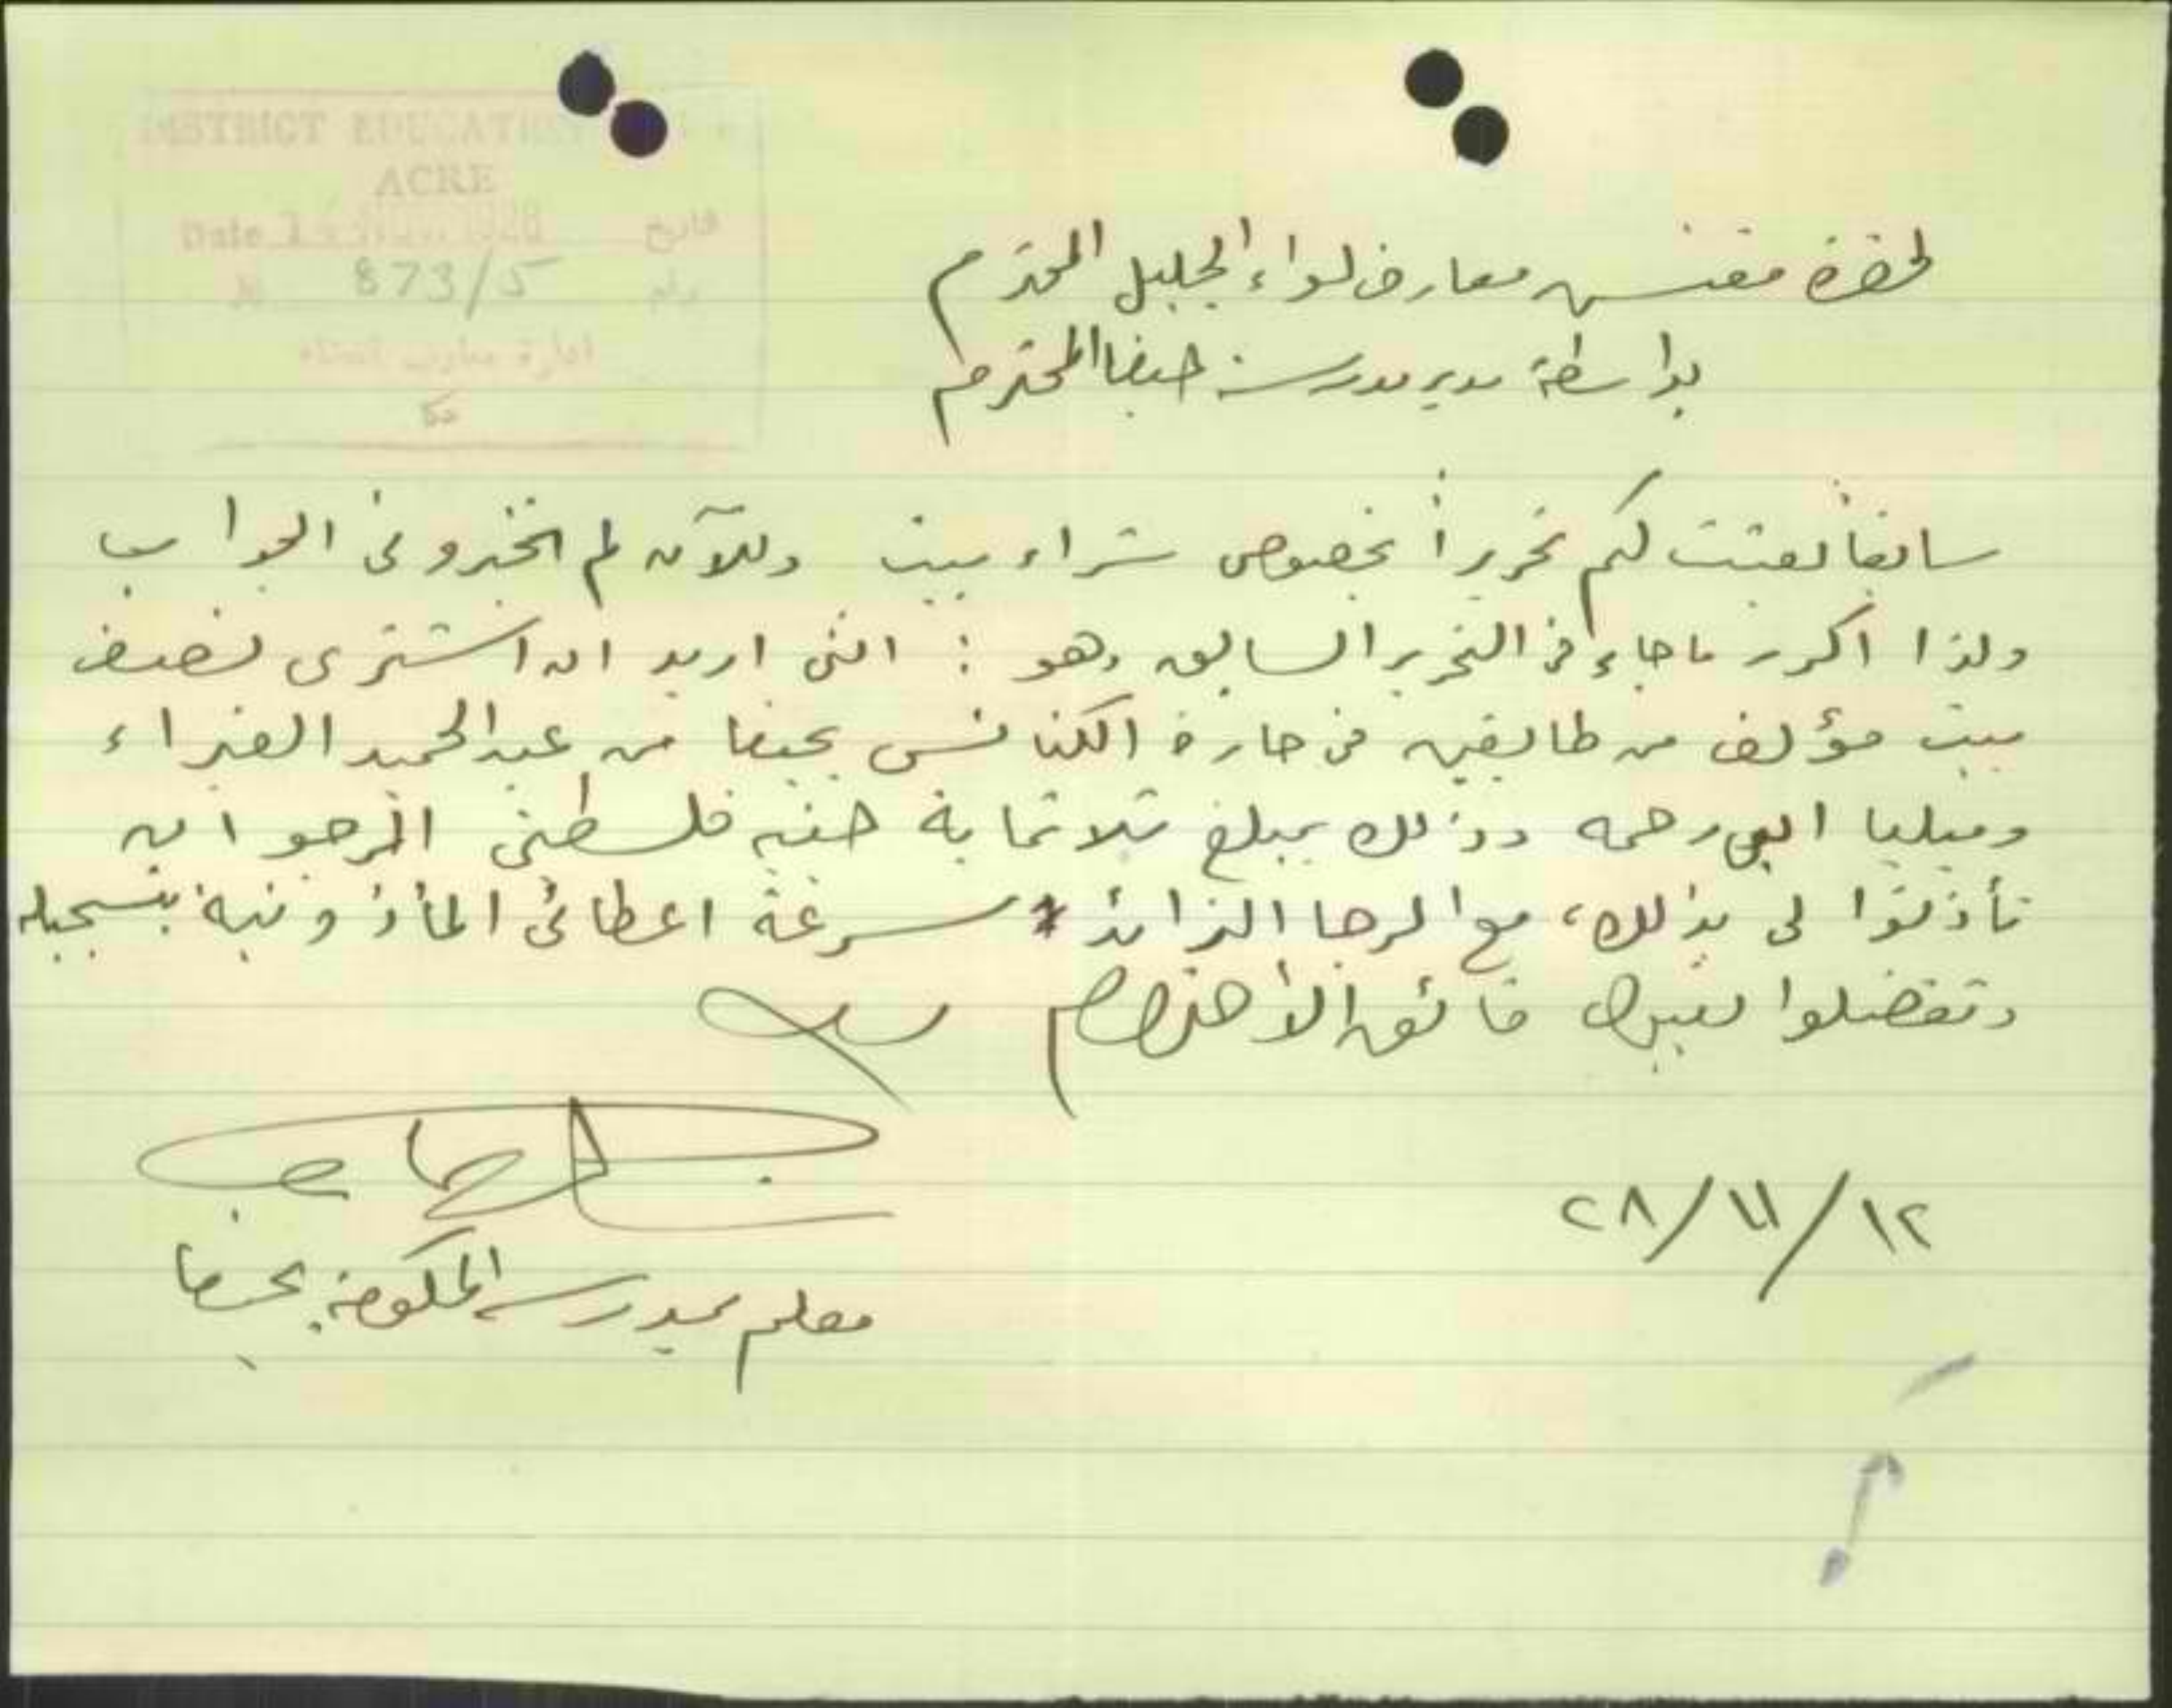 DISTRICT EDUCATION
ACRE
Date 1 NOV. 1928 تاريخ
No 873/5 رقم
ادارة معارف قضاء
عكا
لحضرة مفتش معارف لواء الجليل المحترم
بواسطة مدير مدرسة حيفا المحترم
سابقاً بعثت لكم تحريراً بخصوص شراء بيت وللآن لم تخبروني الجواب
ولذا اكرر ما جاء في التحرير السابق وهو : انني اريد ان اشتري نصف
بيت مؤلف من طابقين في حارة الكنائس بحيفا من عبد الحميد الغبراء
وميليا ابي رحمه وذلك بمبلغ ثلاثماية جنيه فلسطيني المرجو ان
تأذنوا لي بذلك، مع الرجا الزائد سرعة اعطائي المأذونية بتسجيله
وتفضلوا بقبول فائق الاحترام
١٢/١١/٢٨
معلم بمدرسة الحكومة بحيفا